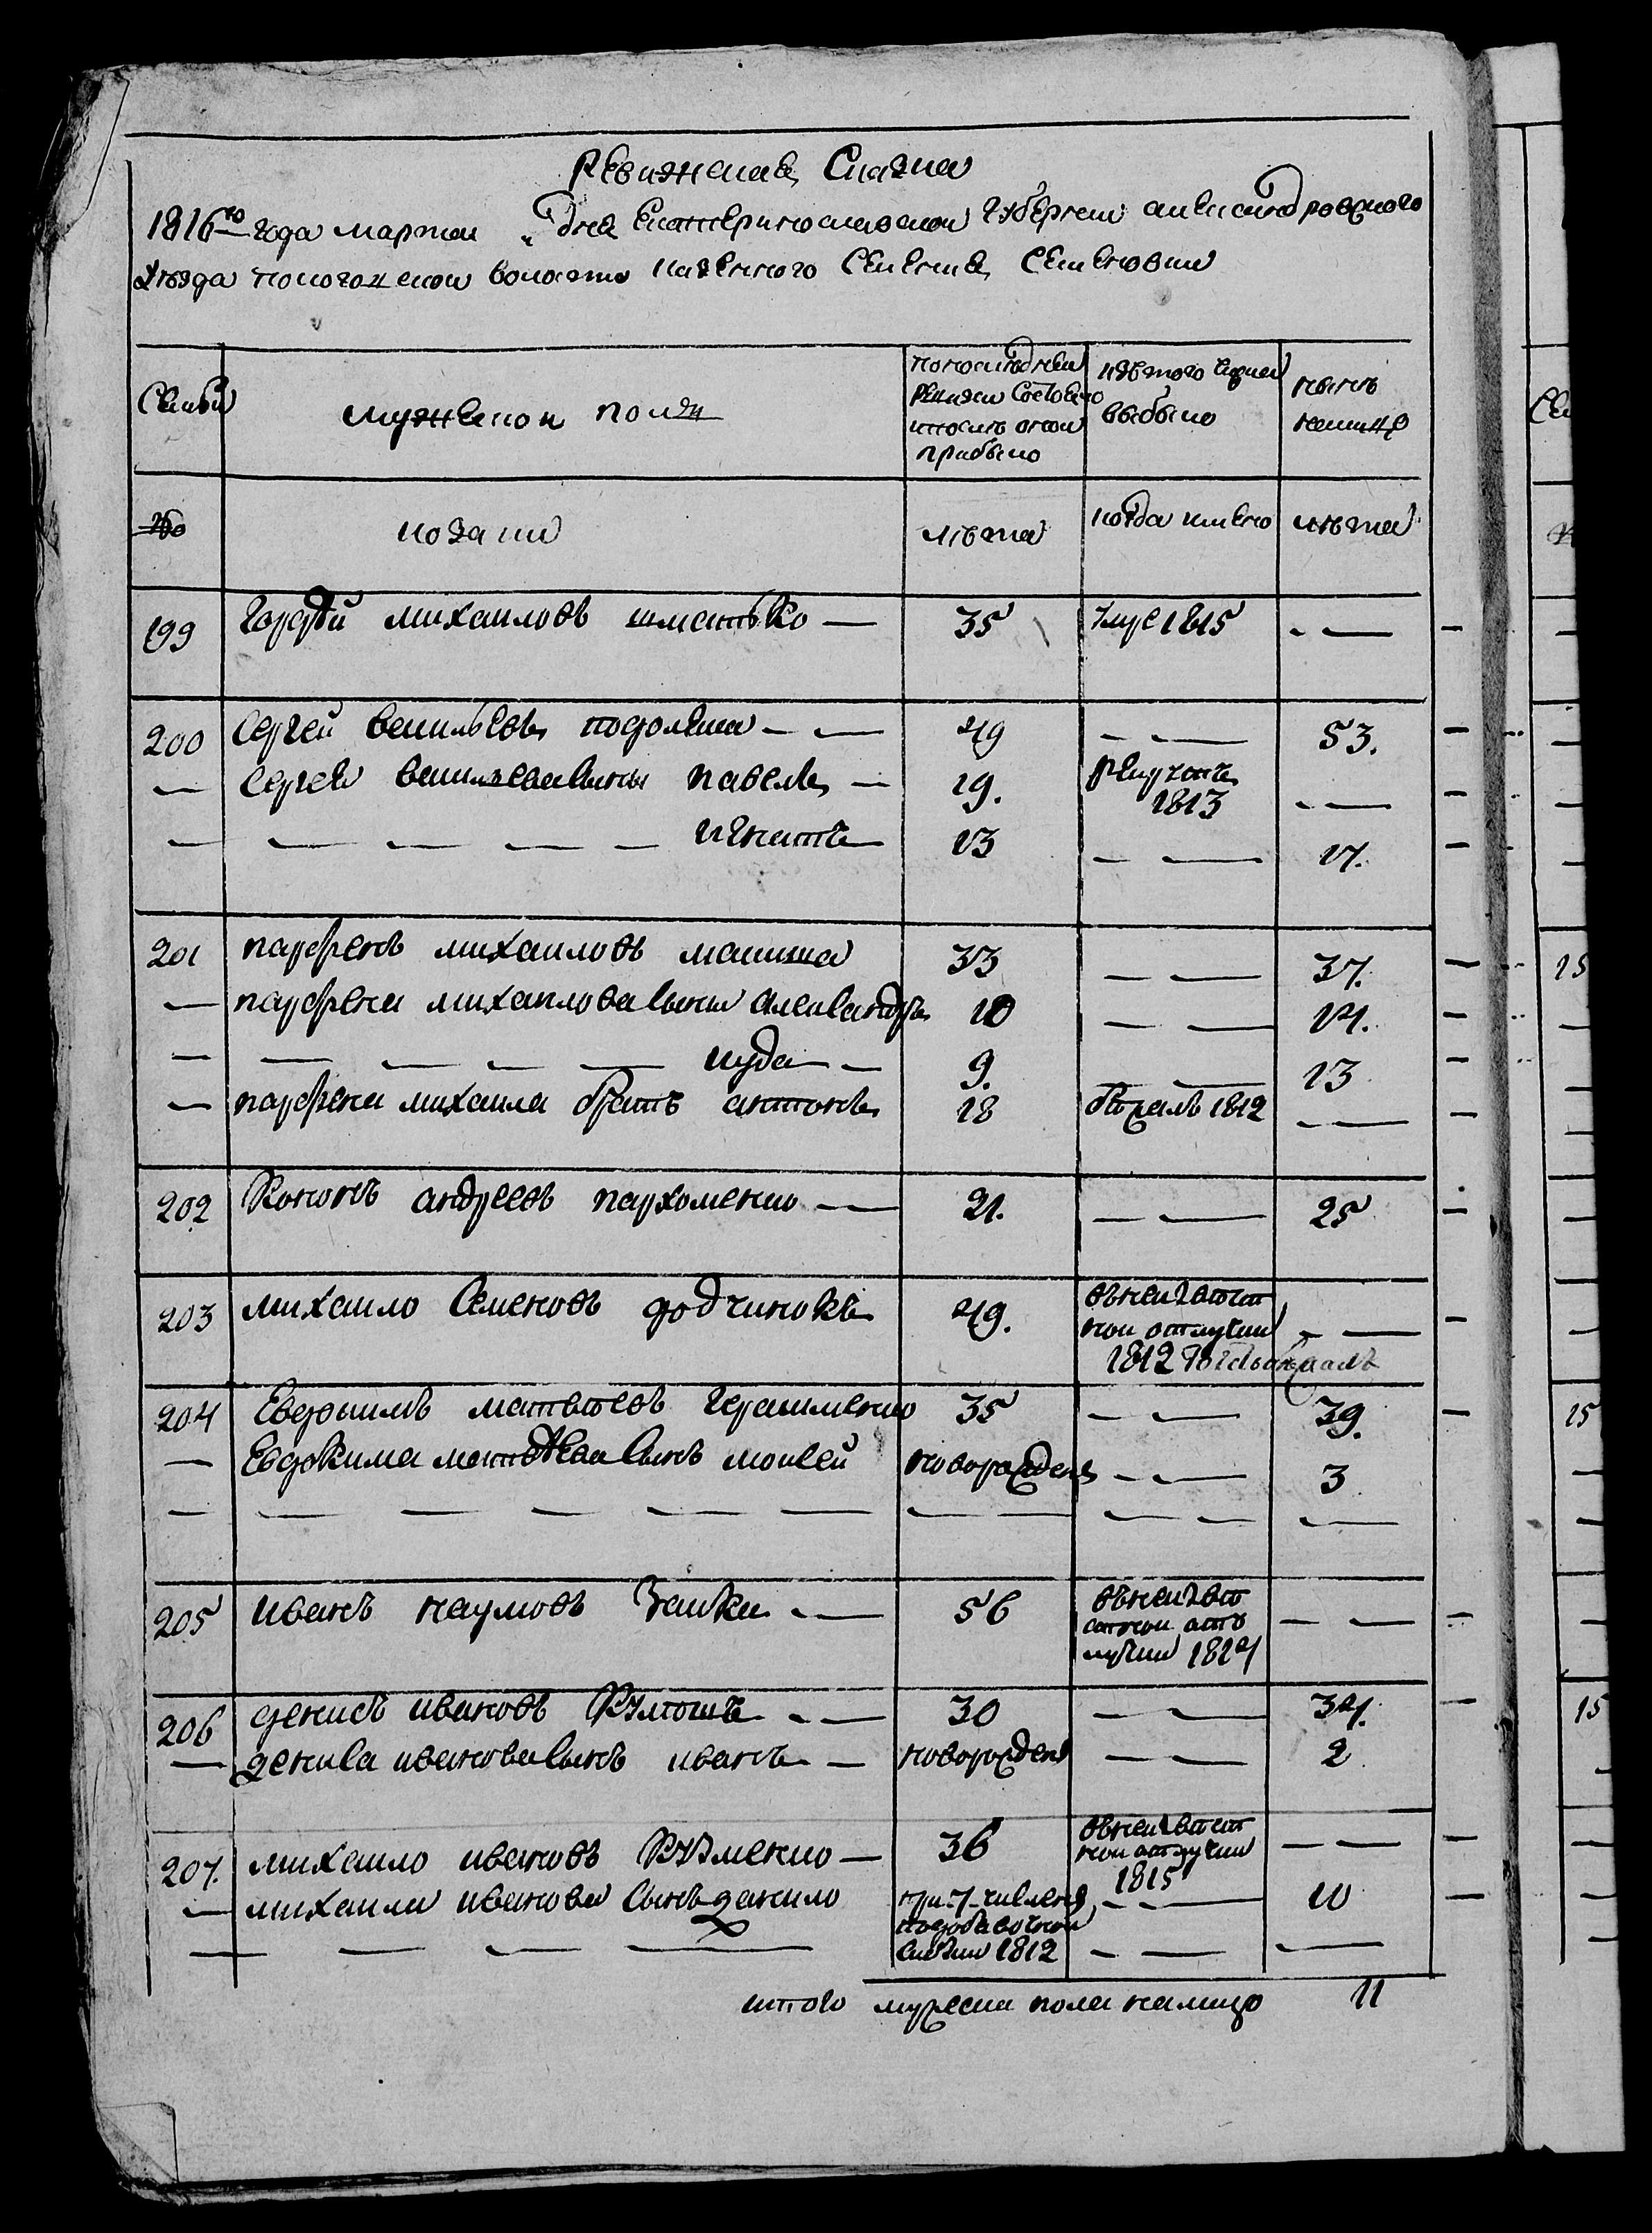 Ревижская Сказка
1816го года марта „ дня Екатеринославской Губернии александровского
уезда пологожской волости казенного Селения Семеновки
Семьи
мужеской полъ
по последней ревизии Состояло и после оной прибыло
изъ того числа выбыло
ныне налицо
№
козаки
лета
когда имено
лета
199 Гордей михайловъ шматько — 35 умре 1815 — —
200 Сергей васильевъ подоляка — — 49 — — 53.
— Сергея васильева сыны павелъ — 19. рекрутъ 1813 — —
— — — — — игнатъ — 13 — — 17.
201 парфенъ михайловъ 33 — — 37.
— парфена михайлова сыны александръ 10 — — 14.
— — — — — иуда — — 9. — — 13
— парфена михайла братъ антонъ 18 1812 — —
202 Кононъ андреевъ пархоменко — — 21. — — 25
203 михайло Семеновъ 49. въ неизвестной отлучки 1812 года — —
204 Евдокимъ матвеевъ Герасименко 35 — — 39.
— Евдокима матвеева Сынъ моисей новорожденъ — — 3
— — — — — — — — — — —
205 иванъ наумовъ Заика — — 56 въ неизвестной отлучки 1814 — —
206 денисъ ивановъ — — 30 — — 34.
— дениса иванова Сынъ иванъ — новорожденъ — — 2
207. михайло ивановъ — 36 въ неизвестной отлучки 1815 — —
— михайла иванова Сынъ данило причисленъ по добавочной сказки 1812 — — 10
— — — — — — —
итого мужеска пола налицо 11
Се
15
15
15